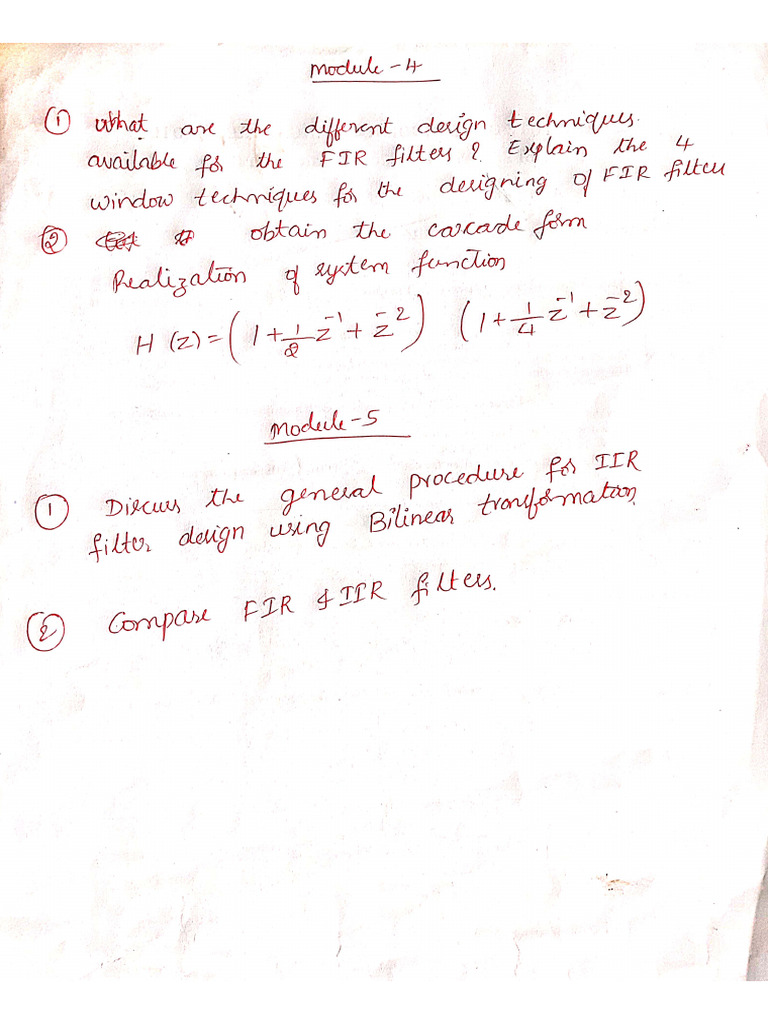 Module-4
① What are the different design techniques.
available for the FIR filters? Explain the 4
window techniques for the designing of FIR filter
② obtain the cascade form
Realization of system function
H(z)=(1+1/2 z⁻¹+z⁻²) (1+1/4 z⁻¹+z⁻²)
Module-5
① Discuss the general procedure for IIR
filter design using Bilinear transformation.
② Compare FIR & IIR filters.